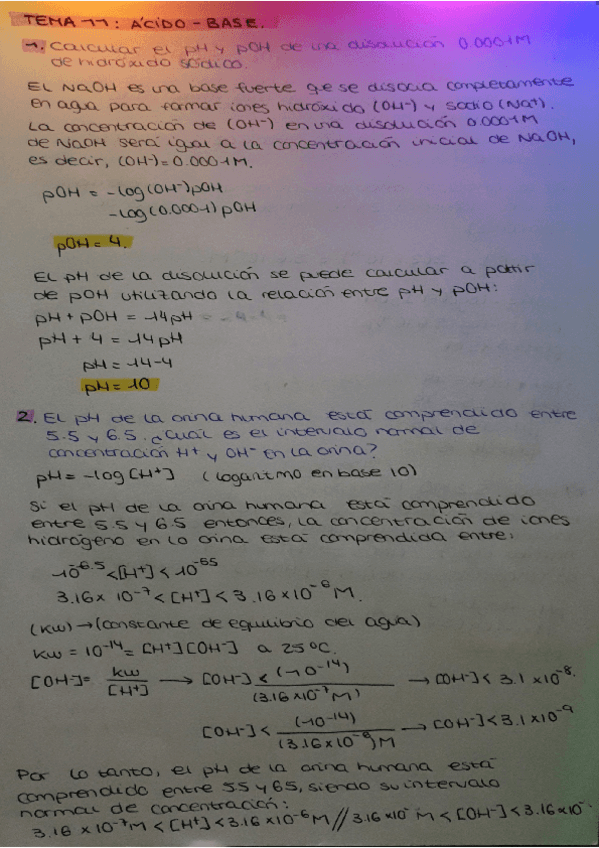 TEMA 11: ÁCIDO-BASE.
1. Calcular el pH y pOH de una disolución 0.0001M
de hidróxido sódico.
EL NaOH es una base fuerte q.e se disocia completamente
en agua para formar iones hidróxido (OH-) y sodio (Na+).
La concentración de (OH-) en una disolución 0.0001M
de NaOH será igual a la concentración inicial de NaOH,
es decir, (OH-)=0.0001M.
pOH = -log(OH-)pOH
-log(0.0001)pOH
pOH=4.
EL pH de la disolución se puede calcular a partir
de pOH utilizando la relación entre pH y pOH:
pH+pOH = 14pH
pH + 4 = 14pH
pH = 14-4
pH=10
2. EL pH de la orina humana está comprendido entre
5.5 y 6.5. ¿Cuál es el intervalo normal de
concentración H+ y OH- en la orina?
pH = -log[H+] (logaritmo en base 10)
Si el pH de la orina humana está comprendido
entre 5.5 y 6.5 entonces, la concentración de iones
hidrógeno en la orina está comprendida entre:
10^-6.5<[H+]<10^-55
3.16x 10^-7<[H+]<3.16x10^-6 M.
(Kw)→(constante de equilibrio del agua)
Kw = 10^-14= [H+][OH-] a 25ºC.
[OH-]= kw/[H+] → [OH-] < (10^-14)/(3.16x10^-7 M) → [OH-]< 3.1 x10^-8.
[OH-]< (10^-14)/(3.16x10^-6)M → [OH-]<3.1x10^-9
Por lo tanto, el pH de la orina humana está
comprendido entre 55 y 65, siendo su intervalo
normal de concentración:
3.16 x10^-7M < [H+]<3.16x10^-6 M // 3.16x10^- M < [OH-]<3.16x10^-